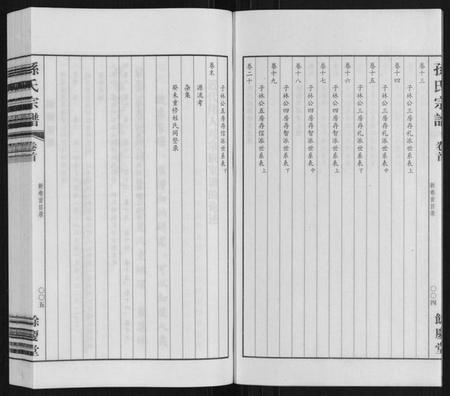 孫氏宗譜
卷首
新卷首目录
〇〇四
餘慶堂
卷十三
子林公三房存礼派世系表上
卷十四
子林公三房存礼派世系表中
卷十五
子林公三房存礼派世系表下
卷十六
子林公四房存智派世系表上
卷十七
子林公四房存智派世系表中
卷十八
子林公四房存智派世系表下
卷十九
子林公五房存信派世系表上
卷二十
子林公五房存信派世系表下
卷末
源流考
杂集
癸未重修姓氏同登录
孫氏宗譜
卷首
新卷首目录
〇〇五
餘慶堂